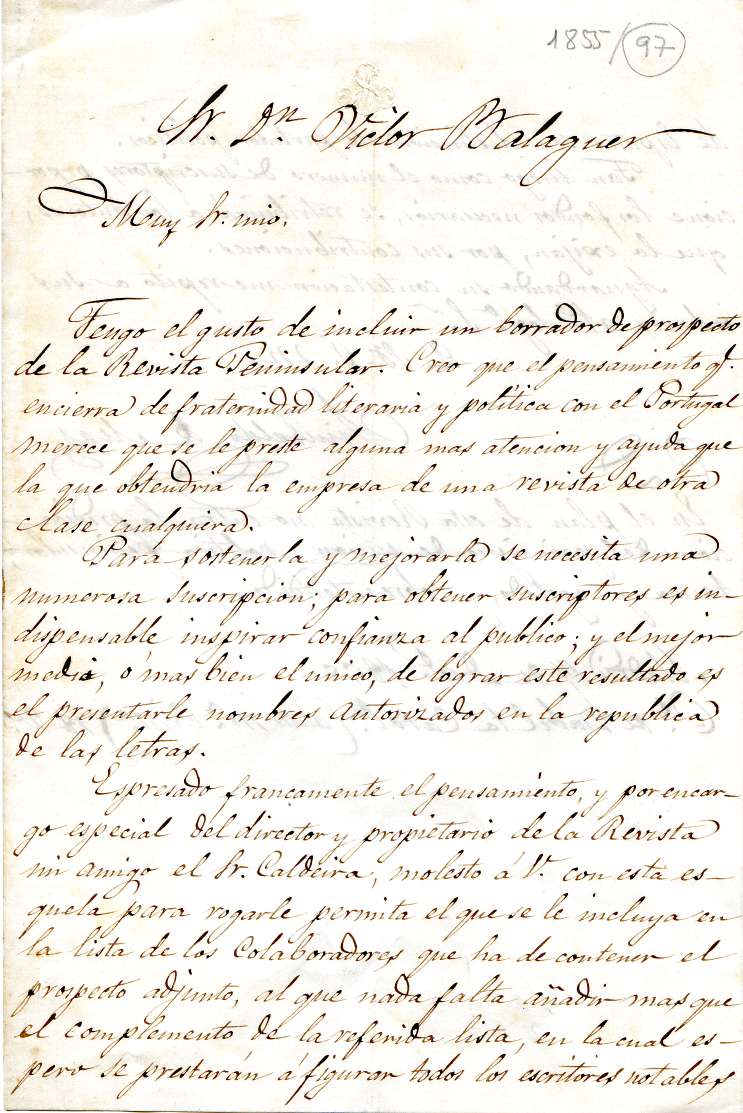 1855/97
Sr. Dn. Victor Balaguer
Muy Sr. mio.
Tengo el gusto de incluir un borrador de prospecto
de la Revista Peninsular. Creo que el pensamiento q.
encierra de fraternidad literaria y política con el Portugal
merece que se le preste alguna mas atencion y ayuda que
la que obtendria la empresa de una revista de otra
clase cualquiera.
Para sostenerla y mejorarla se necesita una
numerosa suscripcion; para obtener suscriptores es in-
dispensable inspirar confianza al publico; y el mejor
medio, ó mas bien el unico, de lograr este resultado es
el presentarle nombres autorizados en la republica
de las letras.
Espresado francamente el pensamiento, y por encar-
go especial del director y propietario de la Revista
mi amigo el Sr. Caldeira, molesto á V. con esta es-
quela para rogarle permita el que se le incluya en
la lista de los colaboradores que ha de contener el
prospecto adjunto, al que nada falta añadir mas que
el complemento de la referida lista, en la cual es-
pero se prestarán á figurar todos los escritores notables